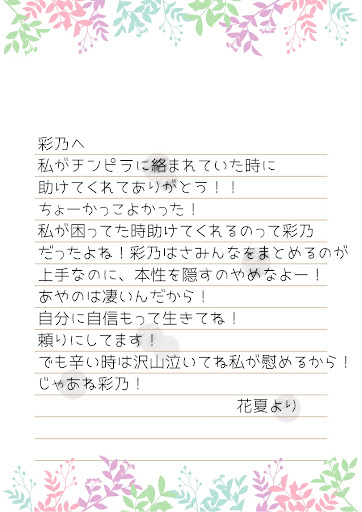 彩乃へ
私がチンピラに絡まれていた時に
助けてくれてありがとう！！
ちょーかっこよかった！
私が困ってた時助けてくれるのって彩乃
だったよね！彩乃はさみんなをまとめるのが
上手なのに、本性を隠すのやめなよー！
あやのは凄いんだから！
自分に自信もって生きてね！
頼りにしてます！
でも辛い時は沢山泣いてね私が慰めるから！
じゃあね彩乃！
花夏より